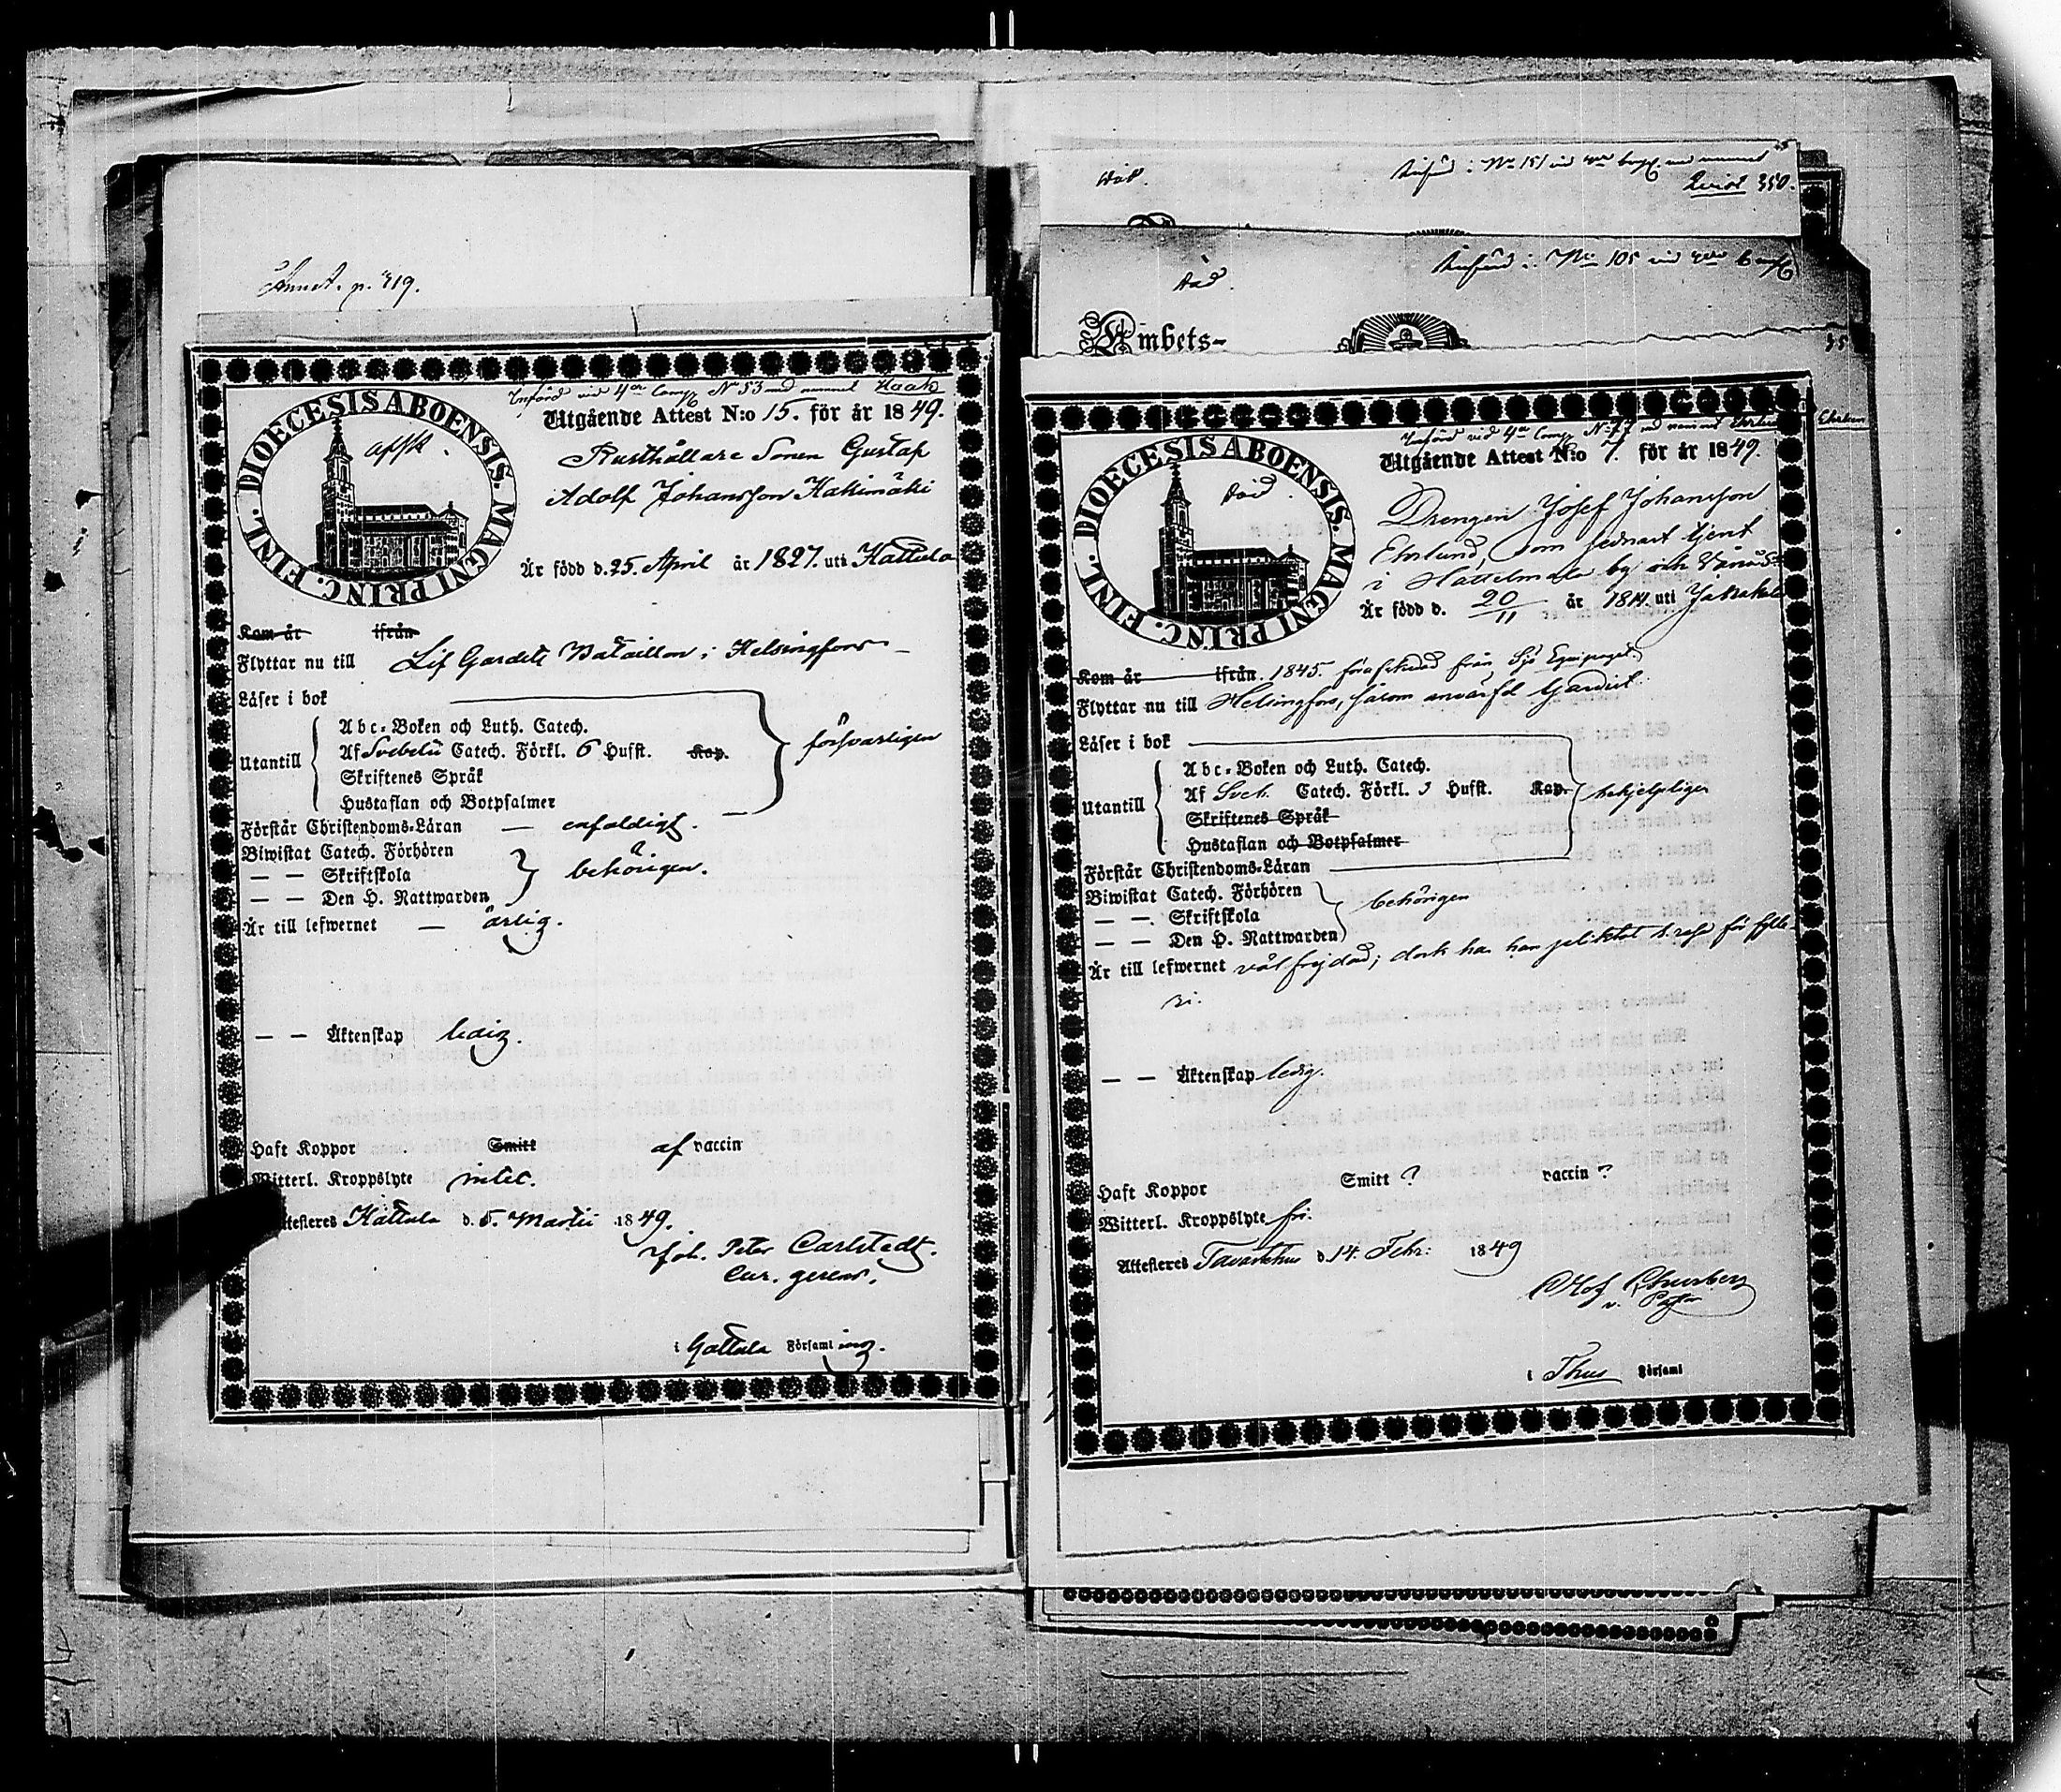 Annot. p. 319.
Införd vid 4de Comp N° 53 med namnet Haak
DIOECESIS ABOENSIS. MAGNI PRINC. FINL.
afsk.
Utgående Attest N:o 15. för år 1849.
Rusthållare Sonen Gustaf
Adolf Johansson Kakimäki
Är född d. 25. April år 1827. uti Hattula
Kom år ifrån
Flyttar nu till Lif Gardets Bataillon i Helsingfors
Läser i bok
Utantill
Abc-Boken och Luth. Catech.
Af Svebelii Catech. Förkl. 6 Hufst. Kap.
Skriftenes Språk
Hustaflan och Botpsalmer
försvarligen
Förstår Christendoms-Läran — enfaldigt.
Biwistat Catech. Förhören
— — Skriftskola
— — Den H. Nattwarden
behörigen.
Är till lefwernet — ärlig.
— — Äktenskap ledig.
Haft Koppor Smitt af vaccin
Witterl. Kroppslyte intet.
Attesteres Hattula d. 5. Martii 1849.
Joh. Peter Carlstedt.
Cur. gerens.
i Hattula Församling.
Död.
Införd i N° 151 vid 4de med namnet
Qvist 350.
död.
Införd i N° 105 vid 4de
Ambets-
35
Införd vid 4de Comp N° 77 med namnet Ehrlund
DIOECESIS ABOENSIS. MAGNI PRINC. FINL.
död.
Utgående Attest N:o 7. för år 1849.
Drengen Josef Johansson
Ehrlund, som sednast tjent
i Hattelmala by och
Är född d. 20/11 år 18 uti
Kom år ifrån. 1845. förafskedad från Sjö Equipaget.
Flyttar nu till Helsingfors, såsom anvärfd Gardist
Läser i bok
Utantill
Abc-Boken och Luth. Catech.
Af Sveb. Catech. Förkl. 5 Hufst. Kap.
Skriftenes Språk
Hustaflan och Botpsalmer
behjelpligen
Förstår Christendoms-Läran
Biwistat Catech. Förhören
— — Skriftskola
— — Den H. Nattwarden
behörigen
Är till lefwernet väl frejdad; dock har han pliktat 1. resa för fylle-
ri.
— — Äktenskap ledig.
Haft Koppor Smitt ? vaccin ?
Witterl. Kroppslyte fri.
Attesteres Tavastehus d. 14. Febr: 1849
Olof
v. Pastor
i Thus Församl